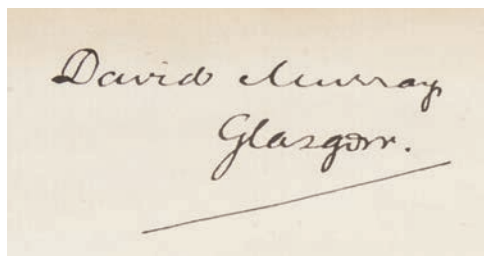 David Murray
Glasgow.